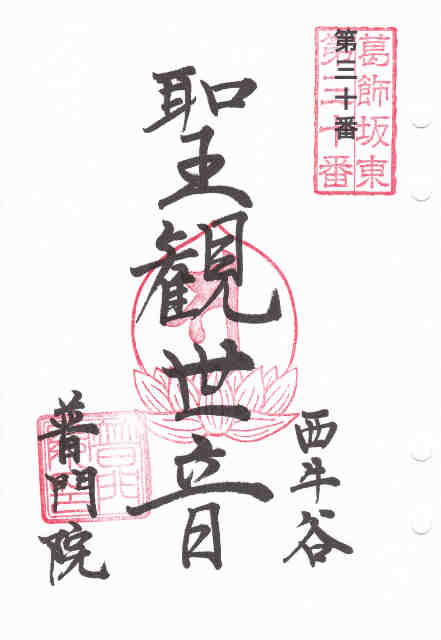 葛飾坂東
第三十番
第三十番
聖観世音
西斗谷
普門院
普門
院